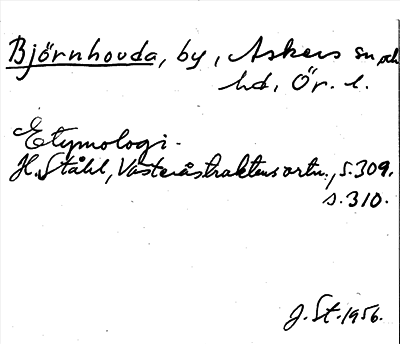 Björnhovda, by, Askers sn och
hd, Ör. l.
Etymologi.
H. Ståhl, Västeråstraktens ortn., s. 309.
s. 310.
J. St. 1956.